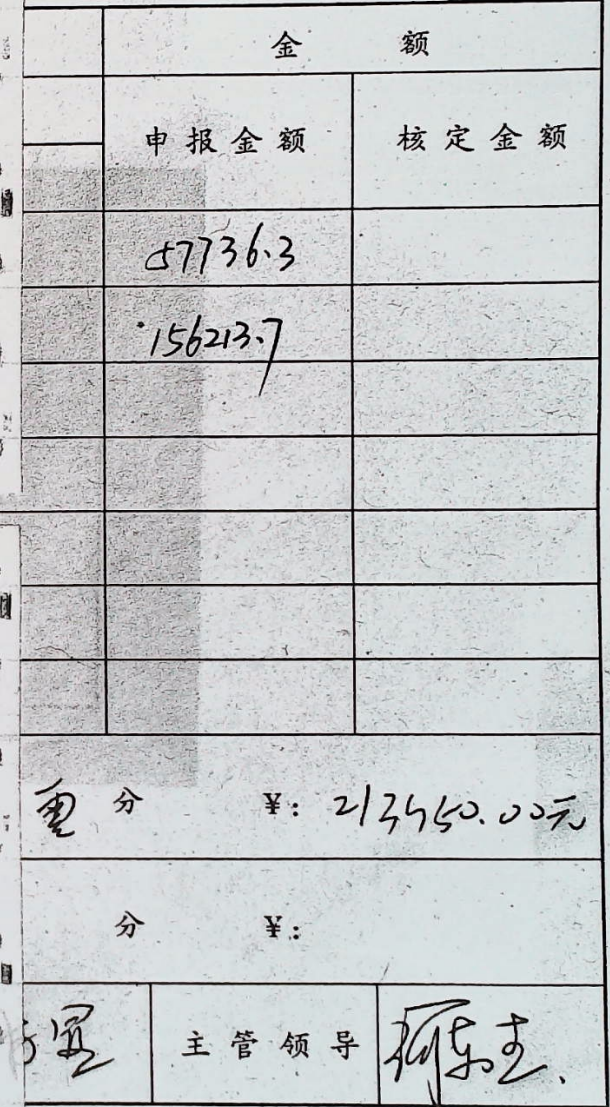 金 额
申报金额 核定金额
57736.3
156213.7
零 分 ¥: 213950.00元
分 ¥:
主管领导